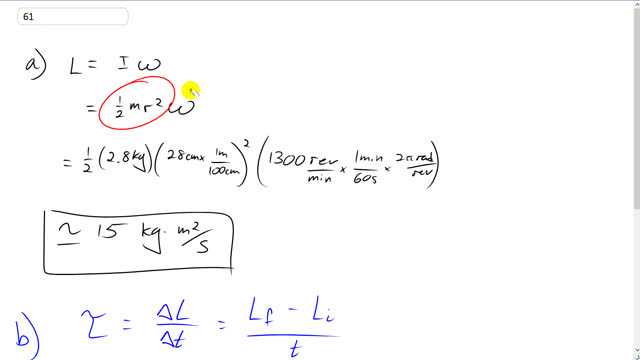 61
a) L = I ω
= 1/2 m r² ω
= 1/2 (2.8 kg) (28cm × 1m/100cm)² (1300 rev/min × 1min/60s × 2π rad/rev)
≃ 15 kg · m²/s
b) τ = ΔL/Δt = (L_f − L_i)/t